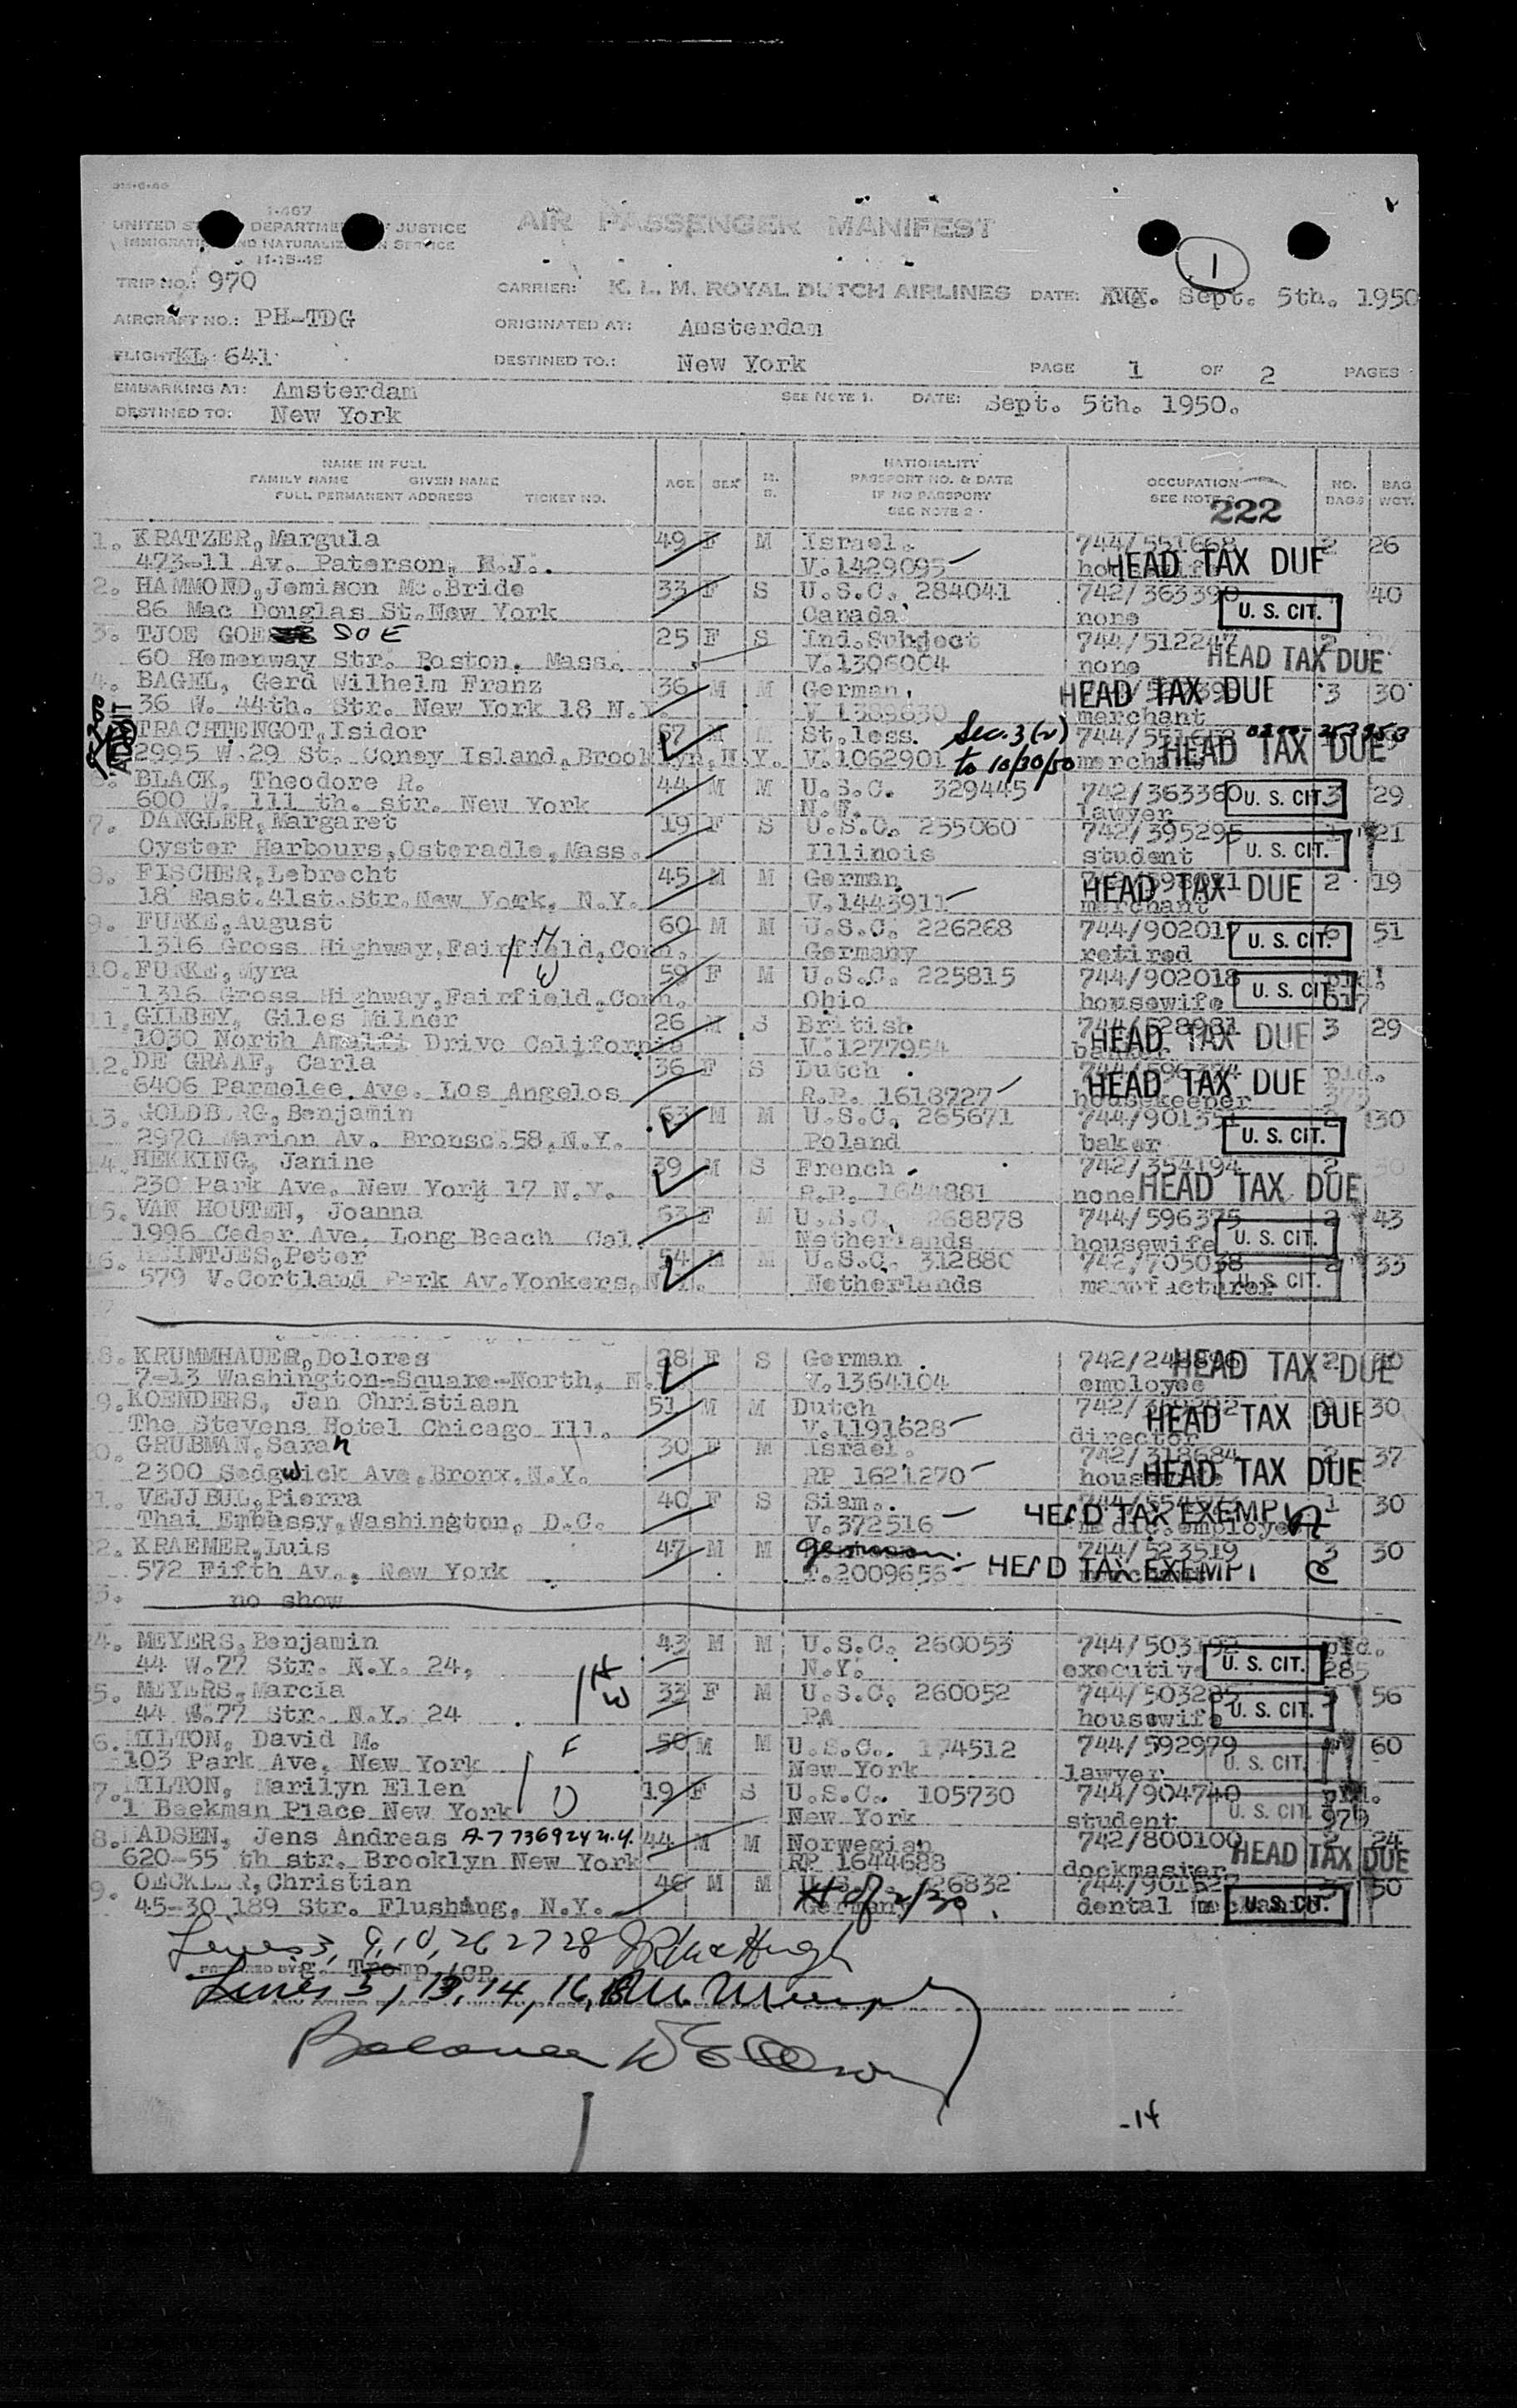 I-467
UNITED ST DEPARTME JUSTICE
IMMIGRATI ND NATURALIZ N SERVICE
11-15-48
AIR PASSENGER MANIFEST
1
TRIP NO.: 970 CARRIER: K. L. M. ROYAL DUTCH AIRLINES DATE: Sept. 5th. 1950
AIRCRAFT NO.: PH-TDG ORIGINATED AT: Amsterdam
FLIGHT KL 641 DESTINED TO.: New York PAGE 1 OF 2 PAGES
EMBARKING AT: Amsterdam SEE NOTE 1. DATE: Sept. 5th. 1950.
DESTINED TO: New York
NAME IN FULL NATIONALITY
FAMILY NAME GIVEN NAME AGE SEX M. PASSPORT NO. & DATE OCCUPATION NO. BAG
FULL PERMANENT ADDRESS TICKET NO. S. IF NO PASSPORT SEE NOTE 2 BAGS WGT.
SEE NOTE 2 222
1. KRATZER, Margula 49 F M Israel. 744/551668 2 26
473-11 Av. Paterson, N.J.. V.1429095 HEAD TAX DUE
2. HAMMOND, Jemison Mc.Bride 33 F S U.S.C. 284041 742/363390 40
86 Mac Douglas St.New York Canada none U. S. CIT.
3. TJOE GOE SOE 25 F S Ind.Subject 744/512247 2
60 Hemenway Str. Boston. Mass. V.1306004 none HEAD TAX DUE
4. BAGEL, Gerd Wilhelm Franz 36 M M German. HEAD TAX DUE 3 30
36 W. 44th. Str. New York 18 N.Y. V 1389630 merchant
ADMIT
TRACHTENGOT, Isidor 67 M M St.less. Sec. 3(2)
2995 W.29 St. Coney Island, Brooklyn, N.Y. V.1062901 to 10/30/50 merchant HEAD TAX DUE
6. BLACK, Theodore R. 44 M M U.S.C. 329445 742/363360 U. S. CIT. 3 29
600 W. 111 th. str. New York N.Y. lawyer
7. DANGLER, Margaret 19 F S U.S.C. 255060 742/395295 1 21
Oyster Harbours, Osteradle, Mass. Illinois student U. S. CIT.
8. FISCHER, Lebrecht 45 M M German HEAD TAX DUE 2 19
18 East.41st.Str.New York, N.Y. V.1443911 merchant
9. FUNKE, August 60 M M U.S.C. 226268 744/902017 6 51
1316 Gross Highway, Fairfield, Conn. H Germany retired U. S. CIT.
10. FUNKE, Myra W 59 F M U.S.C. 225815 744/902018 pld.
1316 Gross Highway, Fairfield, Conn. Ohio housewife U. S. CIT. 017
11. GILBEY, Giles Milner 26 M S British 744/528981 3 29
1030 North Amalfi Drive California V.1277954 banker HEAD TAX DUE
12. DE GRAAF, Carla 36 F S Dutch 744/596374 pld.
6406 Parmelee Ave. Los Angelos R.P. 1618727 housekeeper HEAD TAX DUE 375
13. GOLDBERG, Benjamin 63 M M U.S.C. 265671 744/901351 2 30
2970 Marion Av. Bronsc.58, N.Y. Poland baker U. S. CIT.
14. HEKKING, Janine 39 M S French. 742/354194 2 30
230 Park Ave. New York 17 N.Y. R.P. 1644881 none HEAD TAX DUE
15. VAN HOUTEN, Joanna 63 F M U.S.C. 268878 744/596375 2 43
1996 Cedar Ave. Long Beach Cal. Netherlands housewife U. S. CIT.
16. REINTJES, Peter 54 M M U.S.C. 312880 742/705038 2 33
579 V.Cortland Park Av.Yonkers, N.Y. Netherlands manufacturer U. S. CIT.
18. KRUMMHAUER, Dolores 28 F S German 2
7-13 Washington-Square-North, N.Y. V.1364104 employee HEAD TAX DUE
19. KOENDERS, Jan Christiaan 51 M M Dutch 30
The Stevens Hotel Chicago Ill. V.1191628 director HEAD TAX DUE
20. GRUBMAN, Sarah 30 F M Israel. 742/318684 2 37
2300 Sedgwick Ave. Bronx, N.Y. RP 1621270 HEAD TAX DUE
21. VEJJBUL, Pierra 40 F S Siam. 1 30
Thai Embassy, Washington, D.C. V.372516 HEAD TAX EXEMPT medic.employee
22. KRAEMER, Luis 47 M M German 744/523519 3 30
572 Fifth Av., New York T.2009656 HEAD TAX EXEMPT
23. no show
24. MEYERS, Benjamin 43 M M U.S.C. 260053 744/503192 pld.
44 W.77 Str. N.Y. 24, H N.Y. executive U. S. CIT. 285
25. MEYERS, Marcia W 33 F M U.S.C. 260052 744/503285 56
44 W.77 Str. N.Y. 24 PA housewife U. S. CIT.
26. MILTON, David M. F 50 M M U.S.C. 174512 744/592979 60
103 Park Ave, New York New York lawyer U. S. CIT.
27. MILTON, Marilyn Ellen 19 F S U.S.C. 105730 744/904740 pld.
1 Beekman Place New York D New York student U. S. CIT. 979
28. MADSEN, Jens Andreas A-7 736924 N.Y. 44 M M Norwegian 742/800100 2 24
620-55 th str. Brooklyn New York RP 1644688 dockmaster HEAD TAX DUE
29. OECKLER, Christian 46 M M U.S.C. 26832 744/901527 50
45-30 189 Str. Flushing, N.Y. Germany dental mechanic U. S. CIT.
Lines 3, 9, 10, 26 27 28
g. Tromp/CP.
Lines 5, 13, 14, 16, 18
Balance
-14